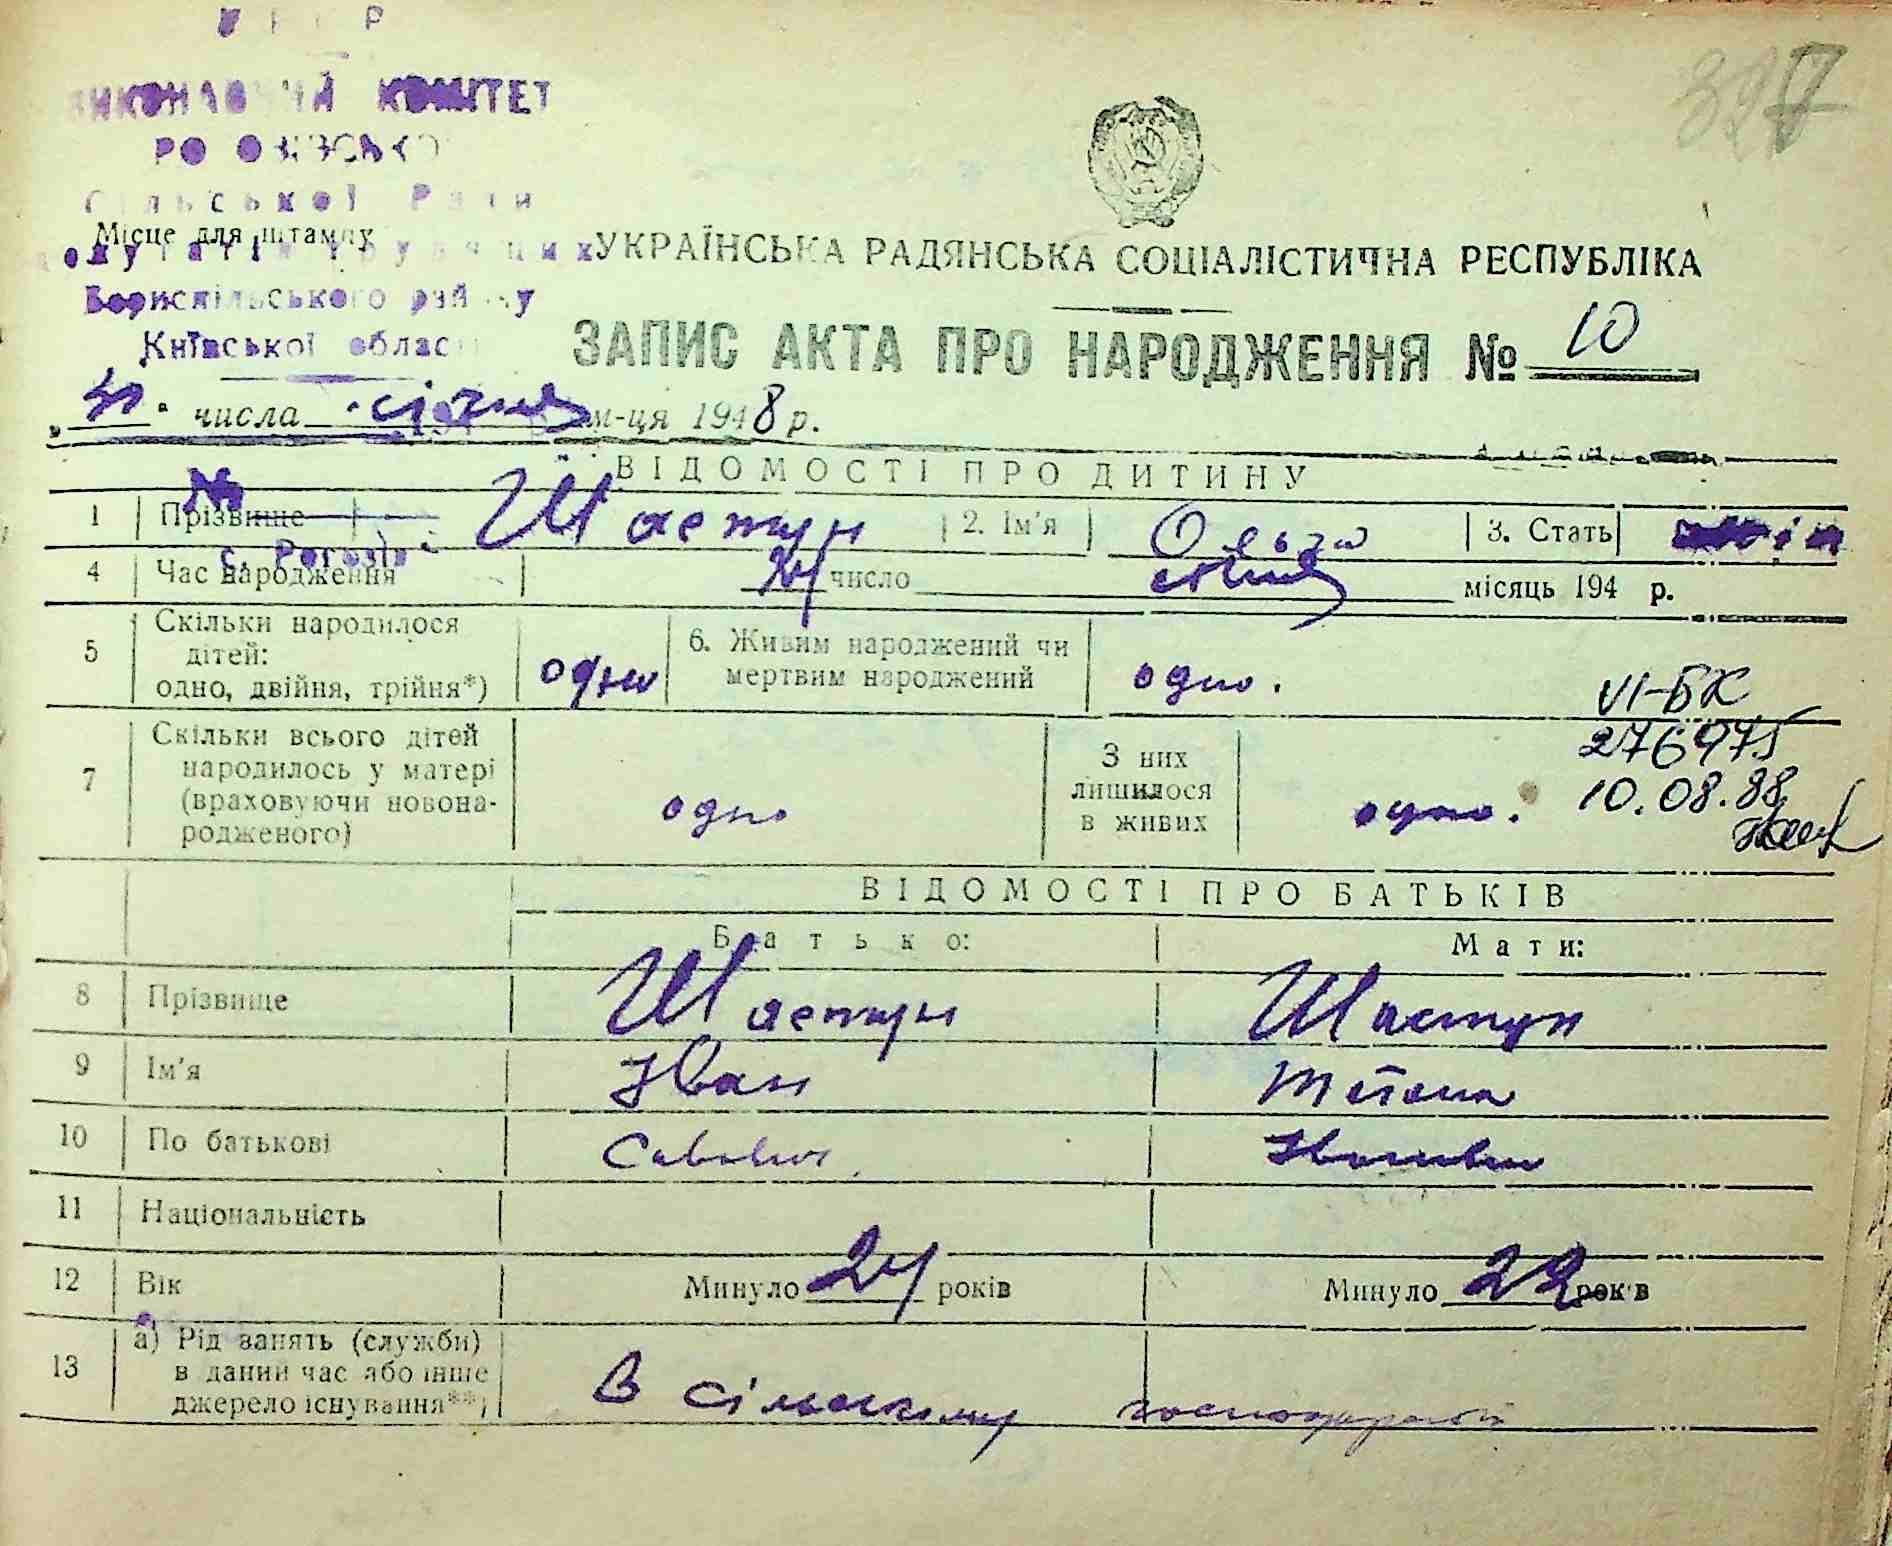 ВИКОНАВЧИЙ КОМІТЕТ
Сільської Ради
Місце для штампу
депутатів трудящих
Бориспільського району
Київської області
№
с. Рогозів
УКРАЇНСЬКА РАДЯНСЬКА СОЦІАЛІСТИЧНА РЕСПУБЛІКА
ЗАПИС АКТА ПРО НАРОДЖЕННЯ № 10
числа січня м-ця 1948 р.
ВІДОМОСТІ ПРО ДИТИНУ
1 Прізвище Шастун 2. Ім'я Ольга 3. Стать
4 Час народження 24 число січня місяць 194 р.
5 Скільки народилося дітей: одно, двійня, трійня*) одно 6. Живим народжений чи мертвим народжений одно.
VI-БК
276975
10.08.88
7 Скільки всього дітей народилось у матері (враховуючи новонародженого) одно З них лишилося в живих одно.
ВІДОМОСТІ ПРО БАТЬКІВ
Батько: Мати:
8 Прізвище Шастун Шастун
9 Ім'я Іван Тетяна
10 По батькові Савович Іванівна
11 Національність
12 Вік Минуло 24 років Минуло 22 років
13 а) Рід занять (служби) в даний час або інше джерело існування**) В сільському господарстві